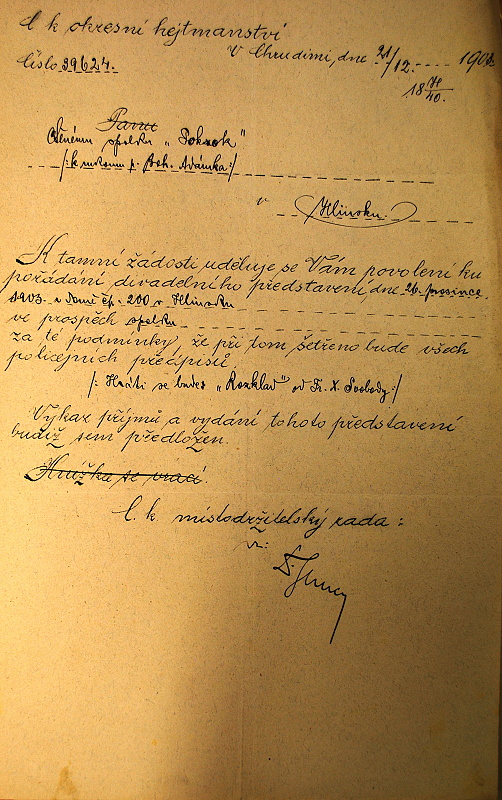 C. k. okresní hejtmanství
V Chrudimi, dne 21/12. 190
Číslo 39624.
18 H/40.
Panu
Ctěnému spolku „Pokrok"
/: k rukoum p. Boh. Adámka :/
v Hlinsku.
K tamní žádosti uděluje se Vám povolení ku
pořádání divadelního představení dne 26. prosince
1903 v domě čp. 200 v Hlinsku
ve prospěch spolku
za té podmínky, že při tom šetřeno bude všech
policejních předpisů.
/: Hráti se bude „Rozklad" od Fr. X. Svobody :/
Výkaz příjmů a vydání tohoto představení
budiž sem předložen.
Knížka se vrací.
C. k. místodržitelský rada :
vz: